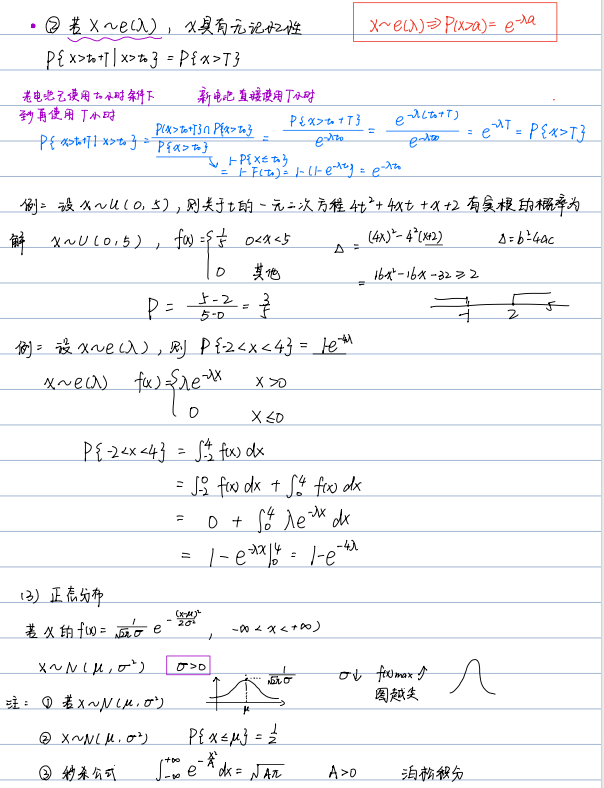 • ② 若 X~e(λ)，x具有无记忆性
x~e(λ)⇒P(x>a) = e^{-λa}
P{x>t₀+T|x>t₀} = P{x>T}
老电池已使用t₀小时条件下 新电池直接使用T小时
到再使用T小时
P{x>t₀+T|x>t₀} = P(x>t₀+T)∩P{x>t₀} / P{x>t₀} = P{x>t₀+T} / e^{-λt₀} = e^{-λ(t₀+T)} / e^{-λt₀} = e^{-λT} = P{x>T}
↘ 1-P{x≤t₀}
= 1-F(t₀) = 1-(1-e^{-λt₀}) = e^{-λt₀}
例= 设 x~U(0,5)，则关于t的一元二次方程 4t²+4xt+x+2 有实根的概率为
解 x~U(0,5)，f(x)={ 1/5 0<x<5 Δ = (4x)²-4²(x+2) Δ=b²-4ac
0 其他 = 16x²-16x-32≥2
P = 5-2 / 5-0 = 3/5
-1 2 5
例= 设 x~e(λ)，则 P{-2<x<4} = 1-e^{-4λ}
x~e(λ) f(x)={ λe^{-λx} x>0
0 x≤0
P{-2<x<4} = ∫_{-2}^{4} f(x) dx
= ∫_{-2}^{0} f(x) dx + ∫_{0}^{4} f(x) dx
= 0 + ∫_{0}^{4} λe^{-λx} dx
= 1-e^{-λx}|_{0}^{4} = 1-e^{-4λ}
(3) 正态分布
若 x 的 f(x) = 1/√2π σ e^{-(x-μ)²/2σ²}，-∞<x<+∞)
x~N(μ,σ²) σ>0
1/√2π σ
σ↓ f(x)max↑
图越尖
μ
注: ① 若 x~N(μ,σ²)
② x~N(μ,σ²) P{x≤μ} = 1/2
③ 秒杀公式 ∫_{-∞}^{+∞} e^{-x²/A} dx = √Aπ A>0 泊松积分